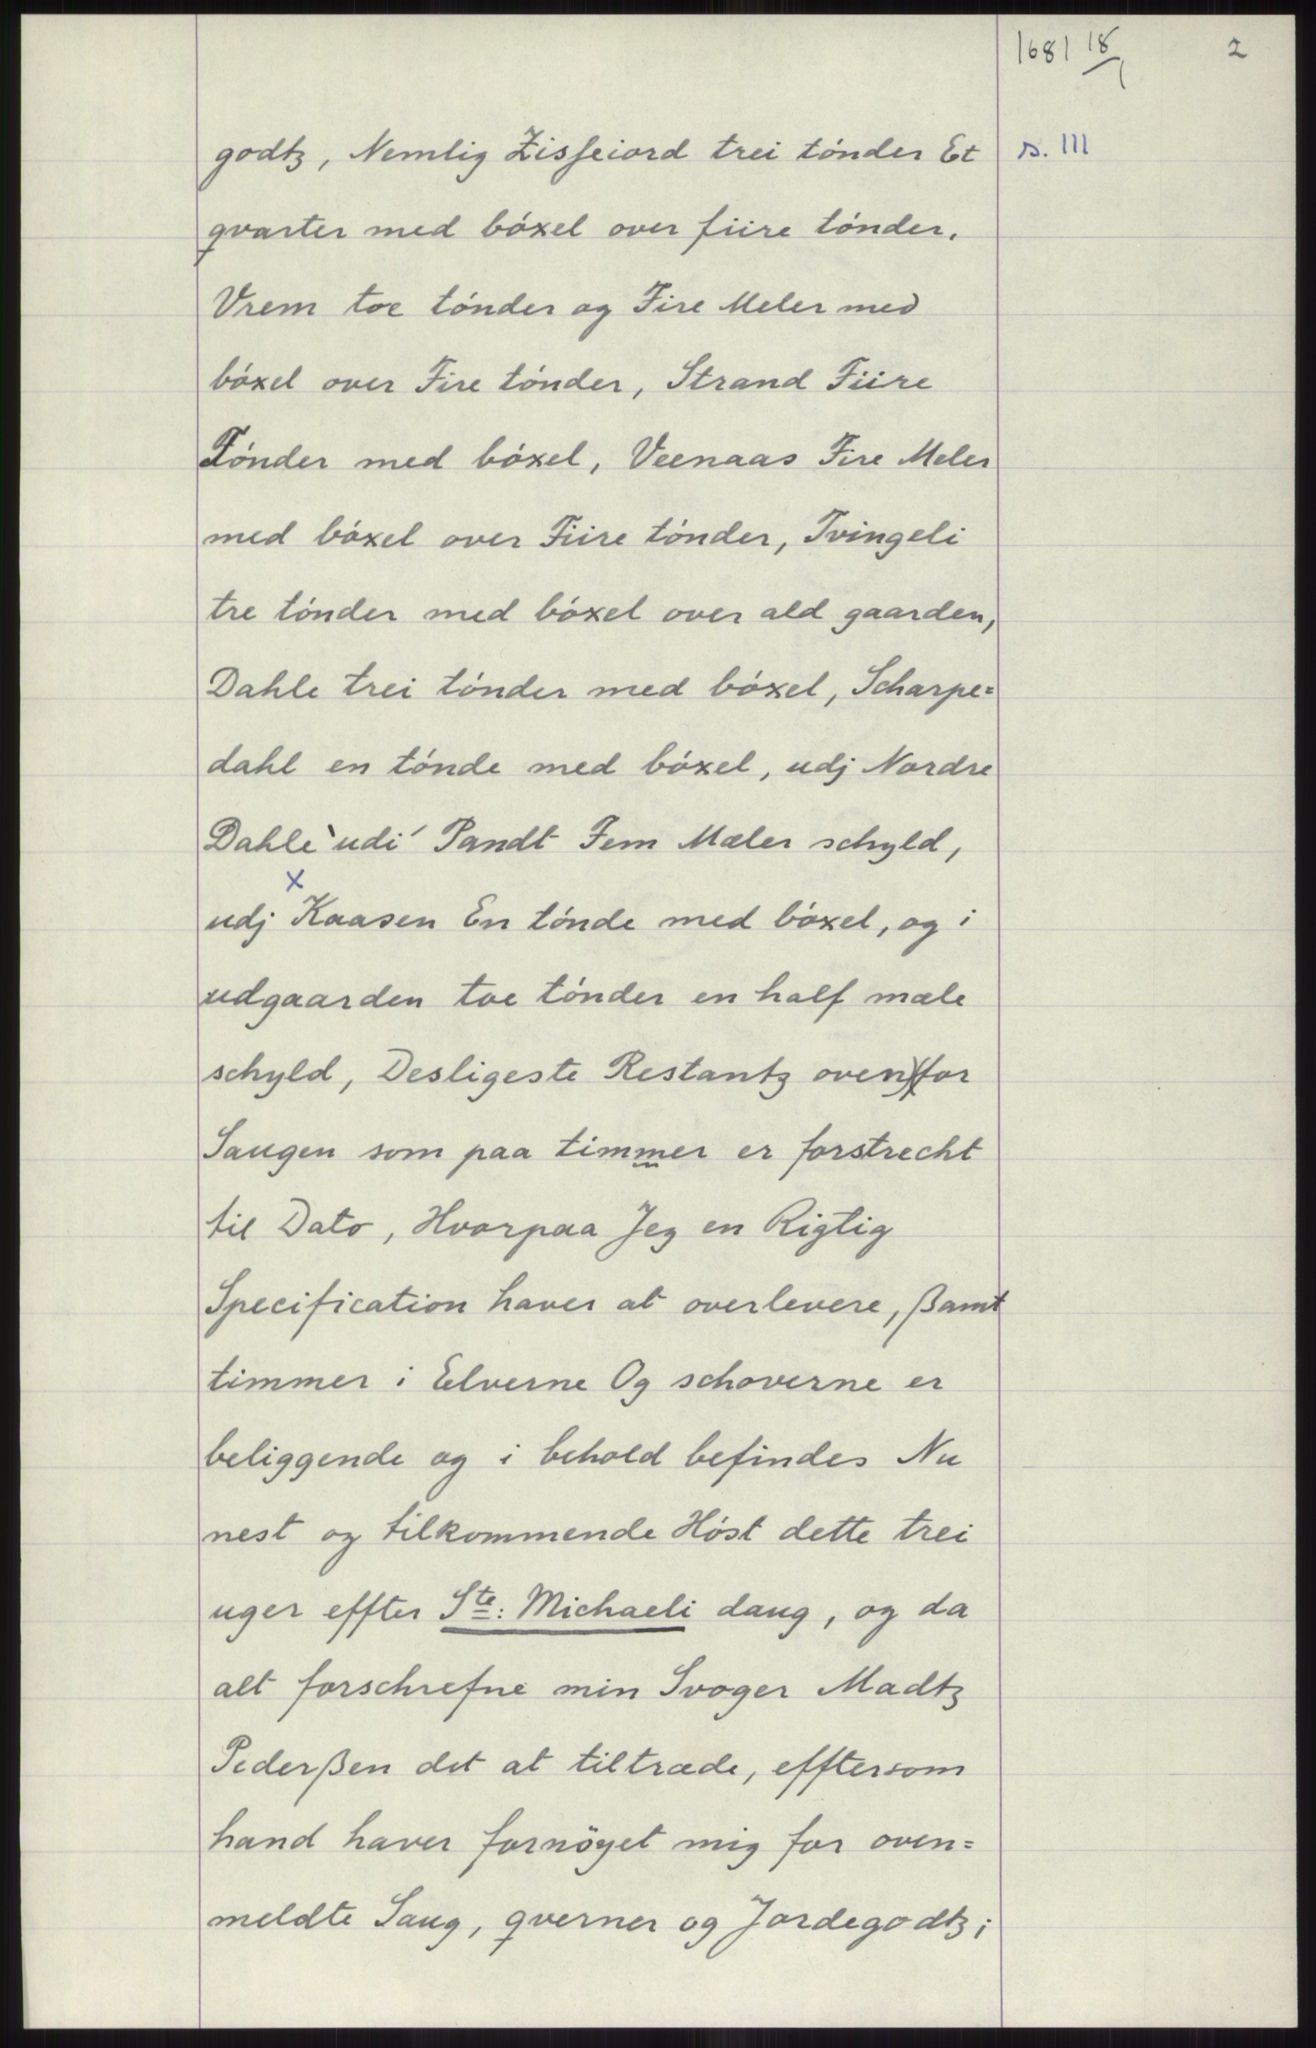 1681 18/1 2
godtz, Nemlig Zisfeiord trei tónder Et
s. III
qvarter med bóxel over fiire tónder.
Vrem toe tónder og Fire Meler med
bóxel over Fire tónder, Strand Fiire
Tónder med bóxel, Veenaas Fire Meler
med bóxel over Fiire tónder, Tvingeli
tre tónder med bóxel over ald gaarden,
Dahle trei tónder med bóxel, Scharpe=
dahl en tónde med bóxel, udj Nordre
Dahle ˋudiˊ Pandt Fem Mæler schyld,
x
udj Kaasen En tónde med bóxel, og i
udgaarden toe tónder en half mæle
schyld, Desligeste Restantz oven)(for
Saugen som paa timmer er forstrecht
til Dato, Hvorpaa Jeg en Rigtig
Specification haver at overlevere, ßamt
timmer i Eelverne Og schoverne er
beliggende og i behold befindes Nu
nest og tilkommende Hóst dette trei
uger effter Ste: Michaeli daug, og da
alt forschrefne min Svoger Madtz
Pederßen det at tiltræde, efftersom
hand haver fornöyet mig for oven=
meldte Saug, qverner og Jordegodtz;